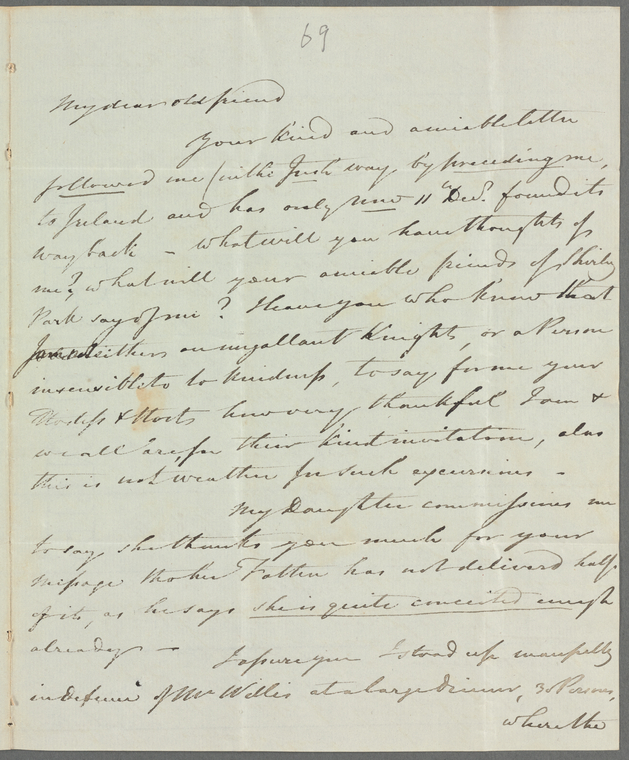 69
My dear old friend
Your kind and amiable letter
followed me (in the Irish way, by preceding me,
to Ireland and has only now 11th Decr. found its
way back - what will you have thoughts of
me? what will your amiable friends of Shirley
Park say of me? I leave you who know that
I am neither an ungallant Knight, or a Person
insensible to kindness, to say for me your
Hostess & Hosts how very thankful I am &
we all are, for their kind invitation, alas
this is not weather for such excursions -
My Daughter commissions me
to say she thanks you much for your
message tho her Father has not deliverd half
of it, as he says she is quite conceited enough
already -
I assure you I stood up manfully
in defence of Mr Willis at a large Dinner, 30 Persons,
where the